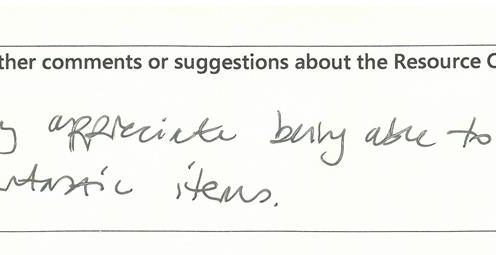 ther comments or suggestions about the Resource C
y appreciate being able to
ntastic items.